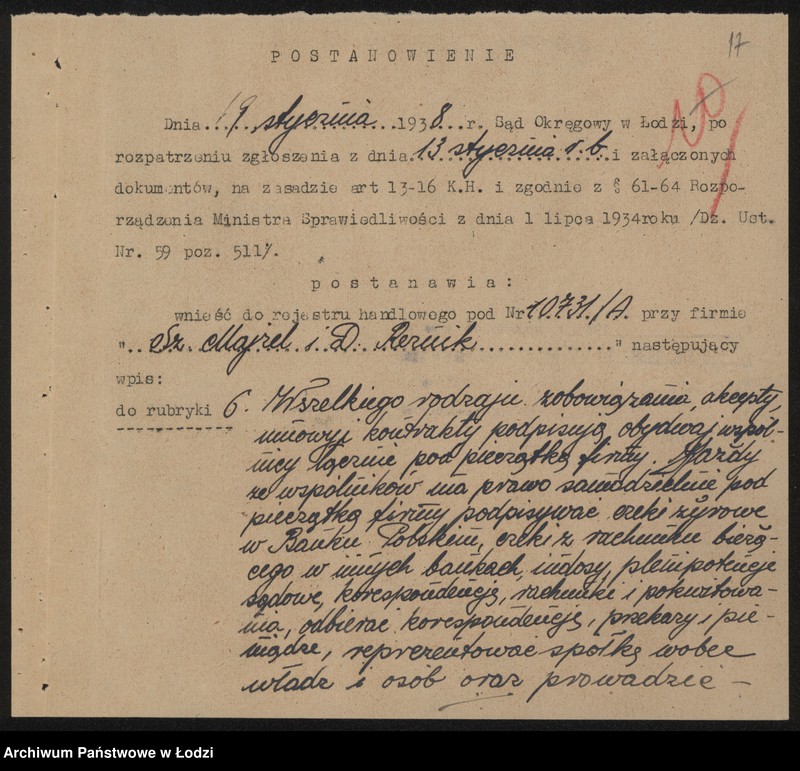 17
POSTANOWIENIE
Dnia..19 stycznia..1938..r. Sąd Okręgowy w Łodzi, po
rozpatrzeniu zgłoszenia z dnia.13 stycznia r.b..i załączonych
dokumentów, na zasadzie art 13-16 K.H. i zgodnie z § 61-64 Rozpo-
rządzenia Ministra Sprawiedliwości z dnia 1 lipca 1934roku /Dz. Ust.
Nr. 59 poz. 511/.
postanawia:
wnieść do rejestru handlowego pod Nr 10.731/A. przy firmie
"..Sz. Majzel i D. Rernik.............." następujący
wpis:
do rubryki 6. Wszelkiego rodzaju zobowiązania, akcepty,
umowy i kontrakty podpisują obydwaj wspól-
nicy łącznie pod pieczątką firmy. Każdy
ze wspólników ma prawo samodzielnie pod
pieczątką firmy podpisywać czeki żyrowe
w Banku Polskim, czeki z rachunku bieżą-
cego w innych bankach, indosy, plenipotencje
sądowe, korespondencję, rachunki i pokwitowa-
nia, odbierać korespondencję, przekazy i pie-
niądze, reprezentować spółkę wobec
władz i osób oraz prowadzić -
Archiwum Państwowe w Łodzi